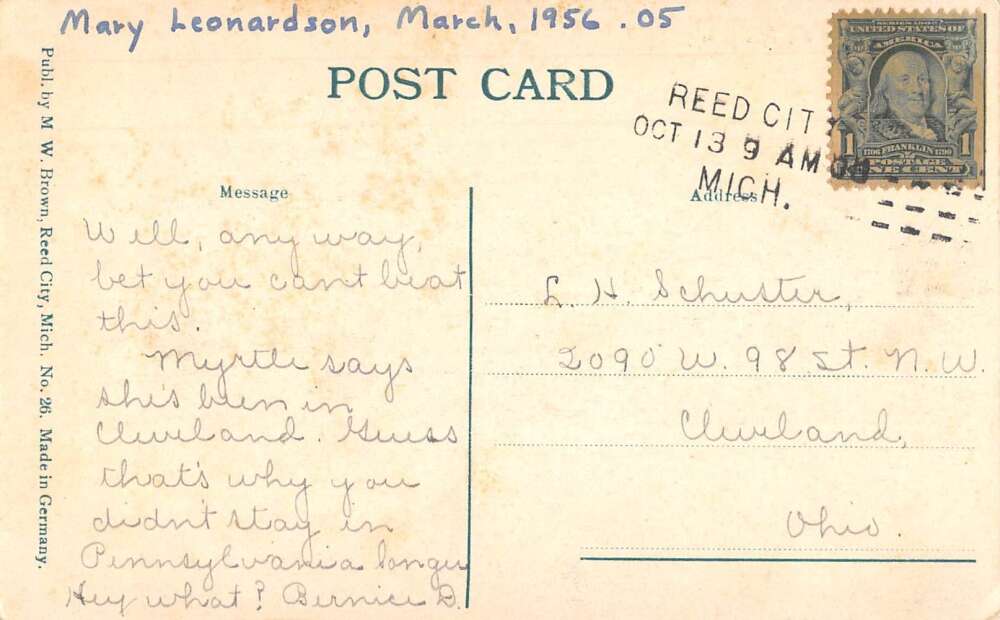 Mary Leonardson, March, 1956 .05
POST CARD
SERIES 1902
UNITED STATES OF
AMERICA
1 1706 FRANKLIN 1790 1
POSTAGE
ONE CENT
REED CIT
OCT 13 9 AM
MICH.
Publ. by M. W. Brown, Reed City, Mich. No. 26. Made in Germany.
Message
Well, any way,
bet you can't beat
this.
Myrtle says
she's been in
Cleveland. Guess
that's why you
didn't stay in
Pennsylvania longer
Hey what? Bernice B.
Address
L. H. Schuster,
2090 W. 98 St. N. W.
Cleveland,
Ohio.